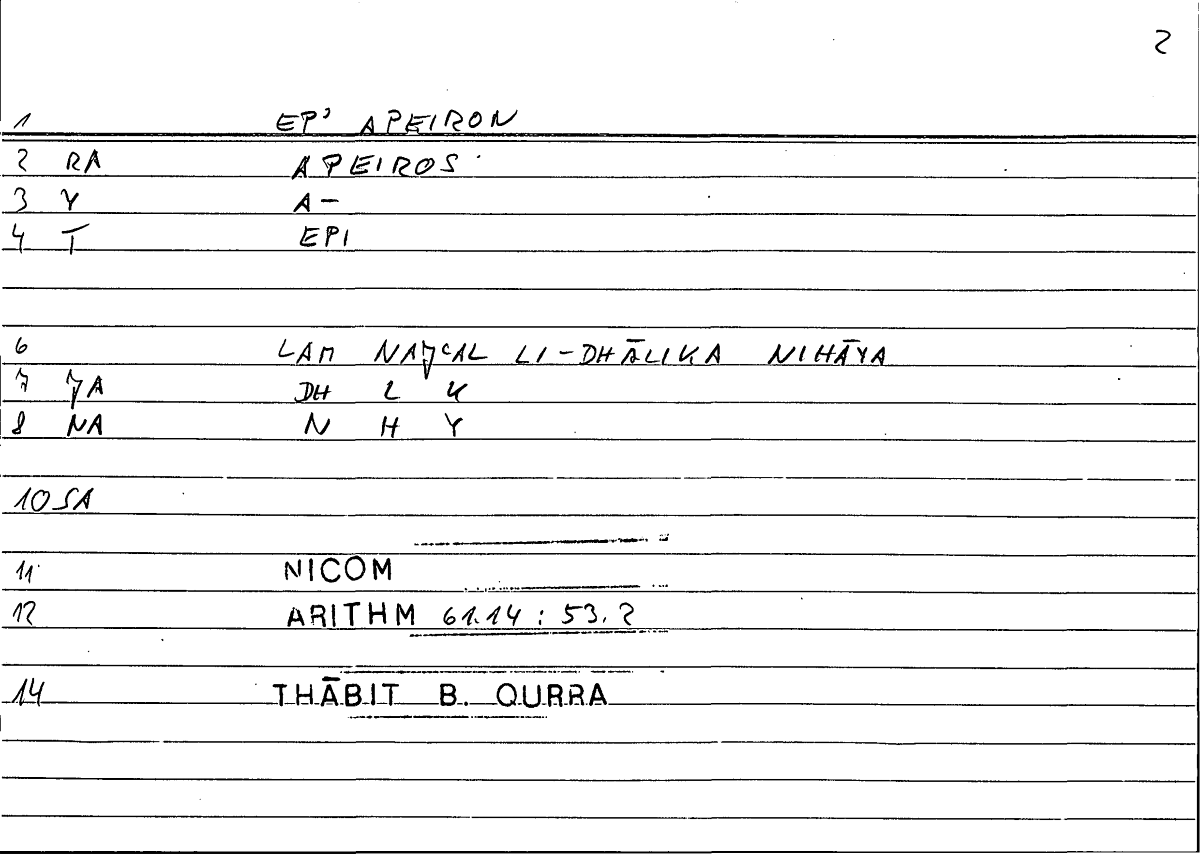 2
1 EP' APEIRON
2 RA APEIROS
3 Y A-
4 T EPI
6 LAM NAJʿAL LI-DHĀLIKA NIHĀYA
7 JA DH L K
8 NA N H Y
10 SA
11 NICOM
12 ARITHM 61.14 : 53.2
14 THĀBIT B. QURRA